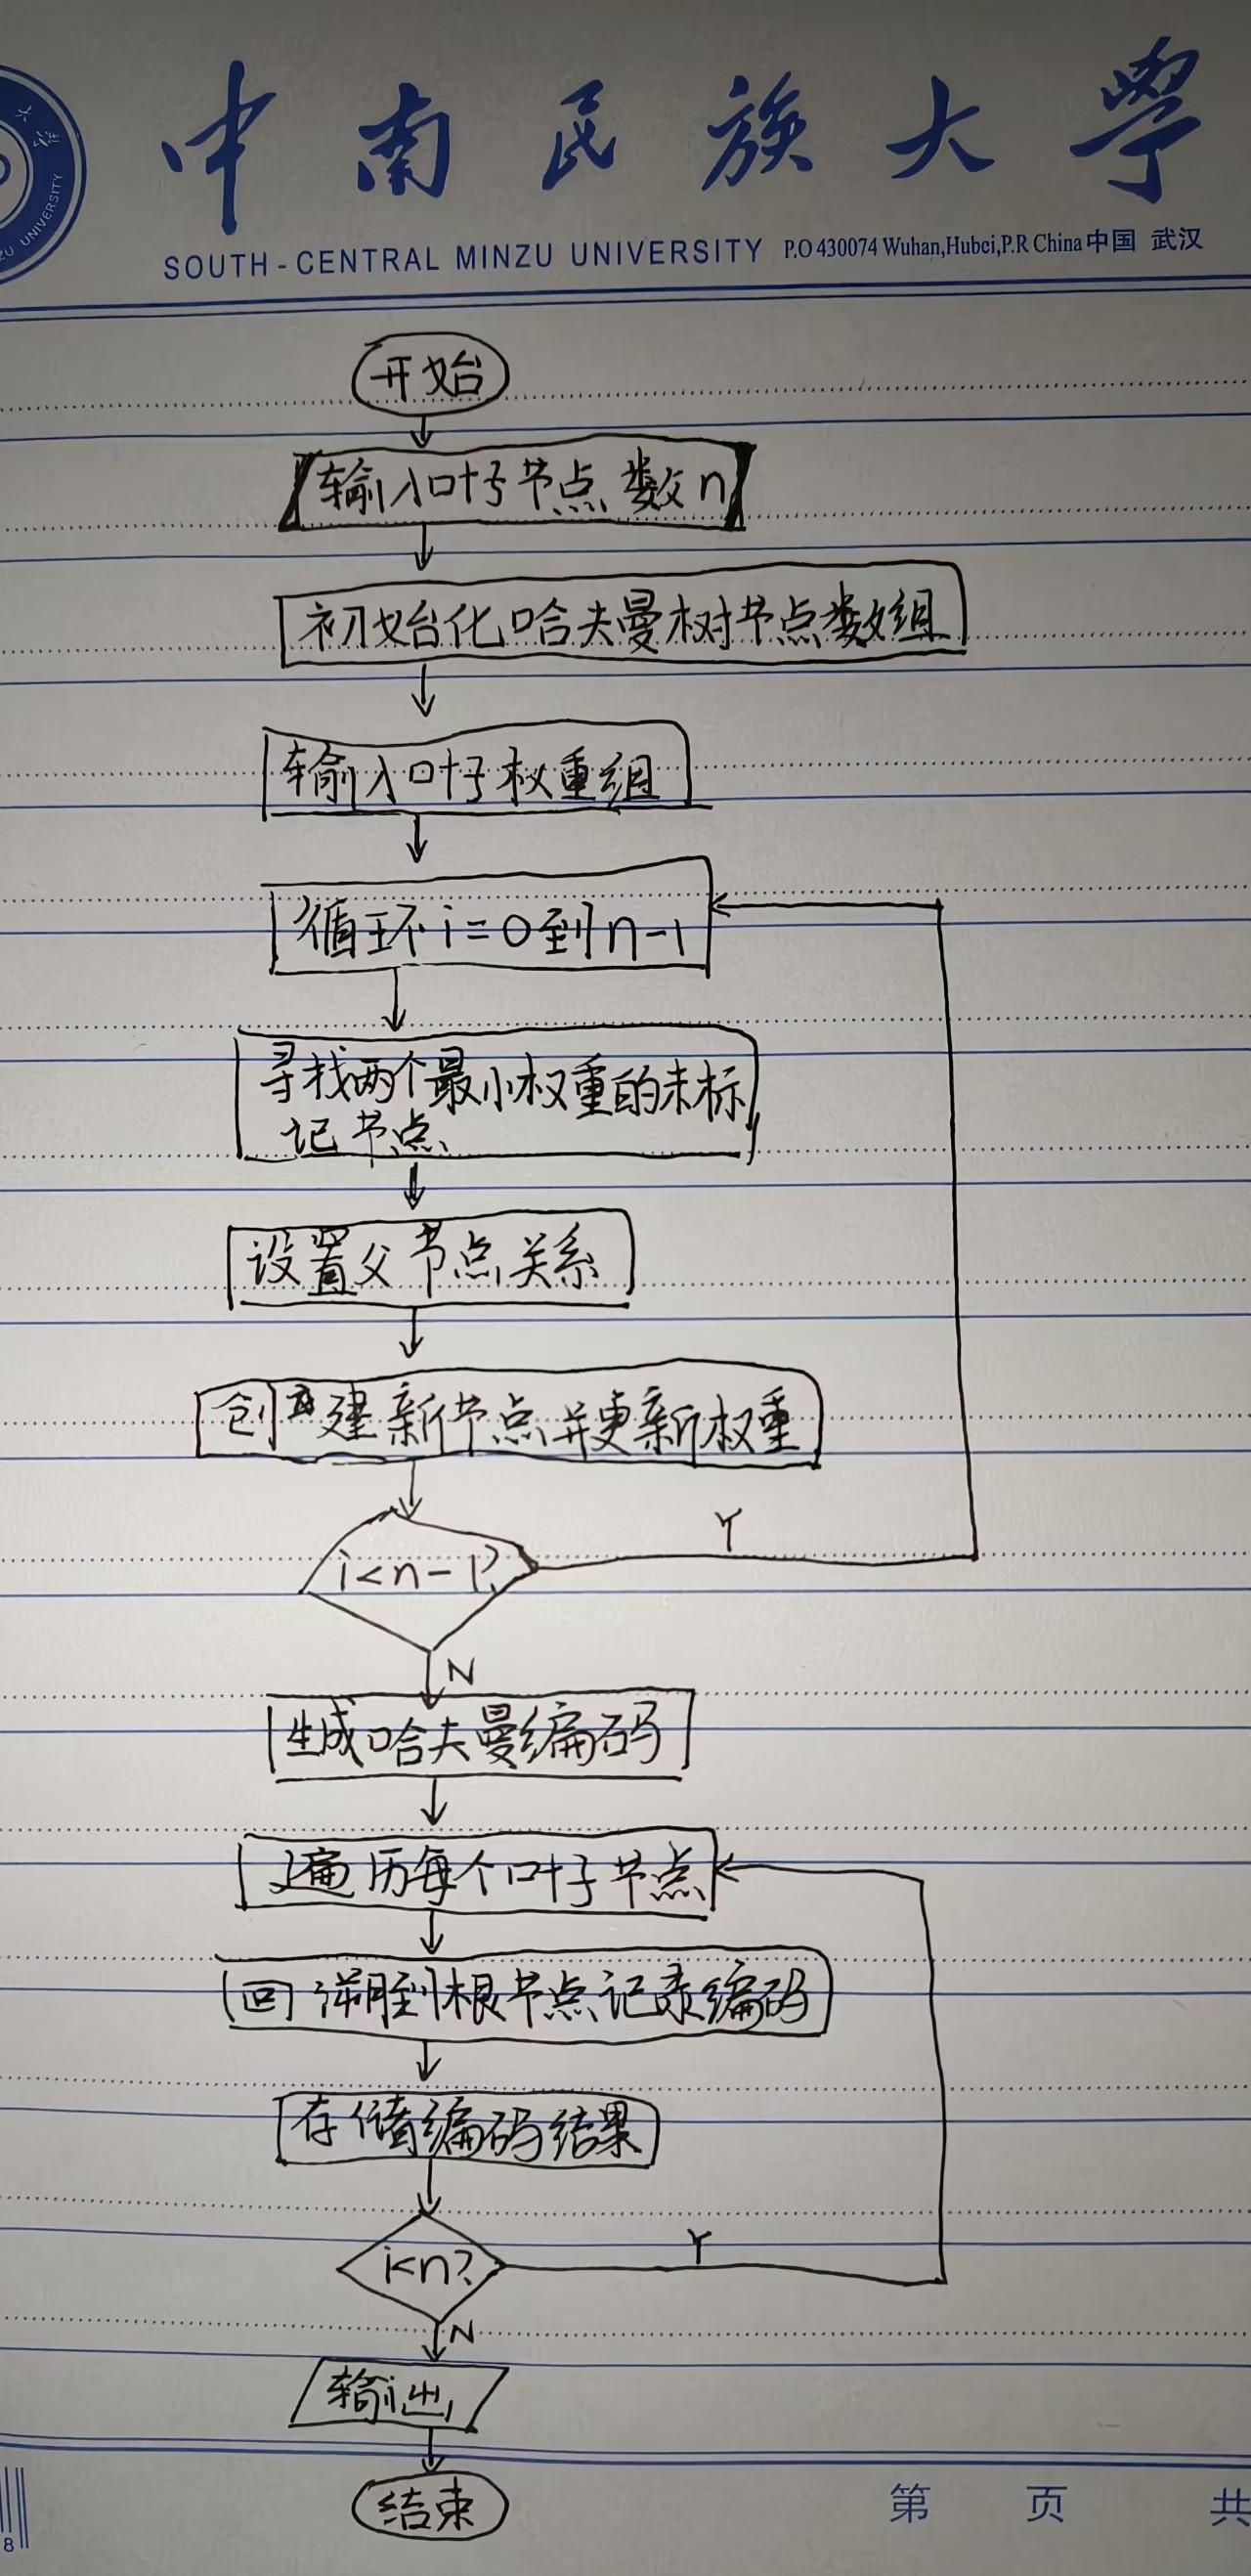 大学
ZU UNIVERSITY
中南民族大学
SOUTH-CENTRAL MINZU UNIVERSITY P.O 430074 Wuhan,Hubei,P.R China 中国 武汉
开始
输入叶子节点数n
初始化哈夫曼树节点数组
输入叶子权重组
循环i=0到n-1
寻找两个最小权重的未标
记节点
设置父节点关系
创建新节点并更新权重
i<n-1?
Y
N
生成哈夫曼编码
遍历每个叶子节点
回溯到根节点记录编码
存储编码结果
i<n?
Y
N
输出
结束
8
第 页 共